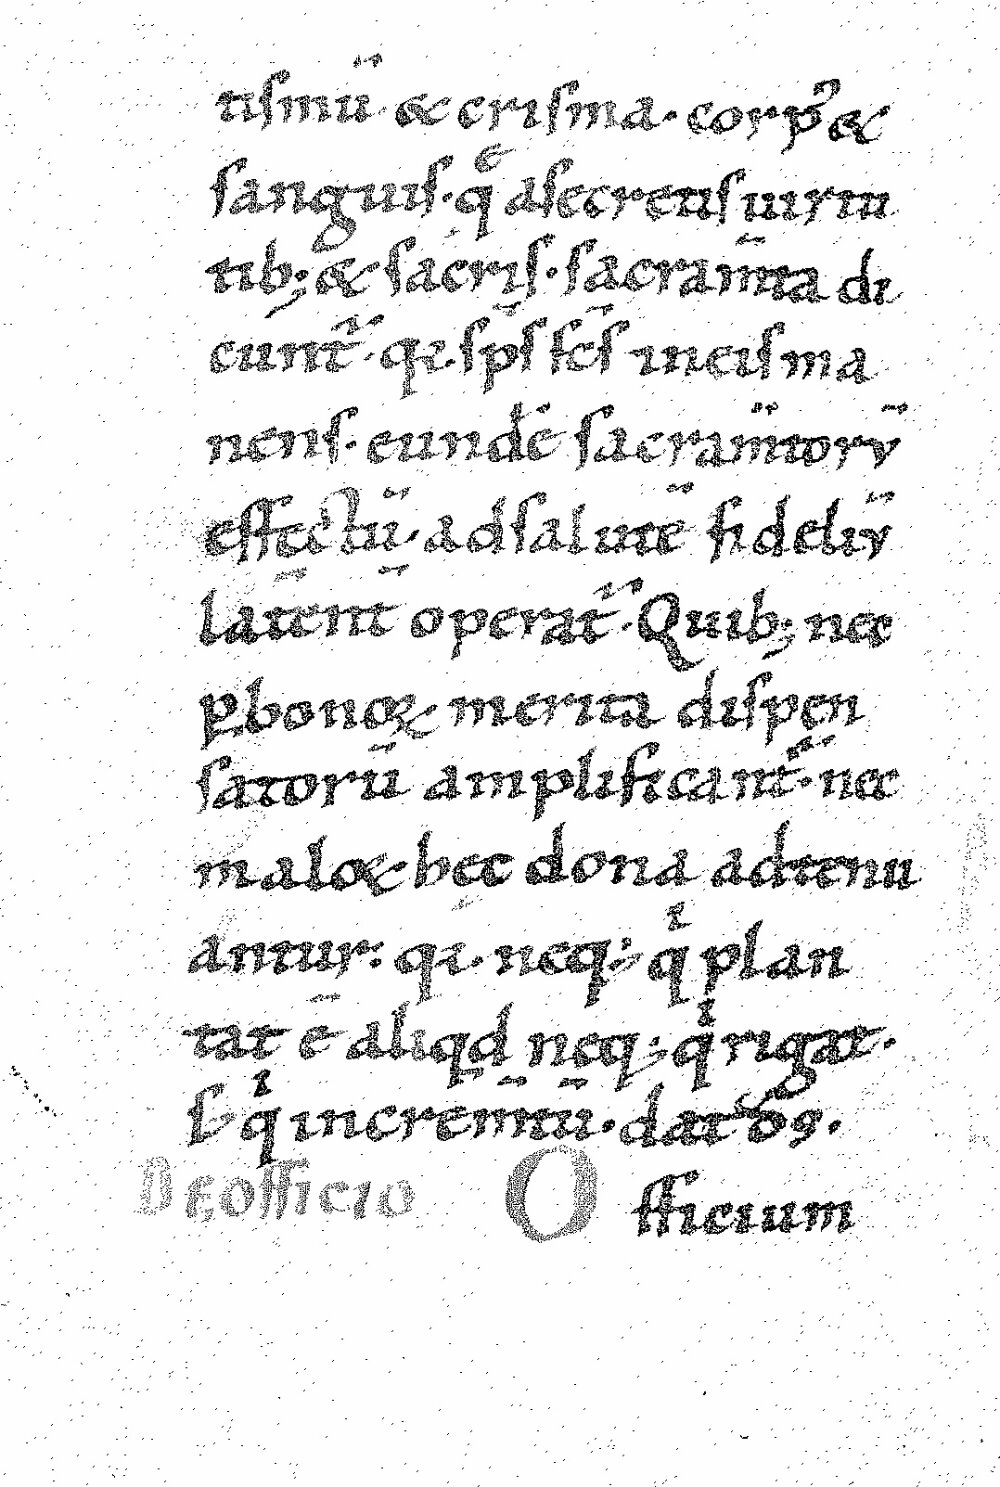 tiſmū & criſma· corpꝰ &
ſanguiſ· qͤ aſecretiſ uirtu
tib; & ſacriſ· ſacram̄ta di
cunt᷑· qi· ſp̄ſ ſc̄ſ ineiſ ma
nenſ· eundē ſacram̄torū
effectū· adſalutē fideliū
latēnt̄ operat᷑· Quib; nec
ꝑbonoꝝ merita diſpen
ſatorū amplificant᷑· nec
maloꝝ hęc dona adtenu
antur· qi· neq; qͥ plan
tat ē aliqd neq; qͥ rigat·
ſꝫ qͥ increm̄tū· datōꝰ·
DE officio O fficium